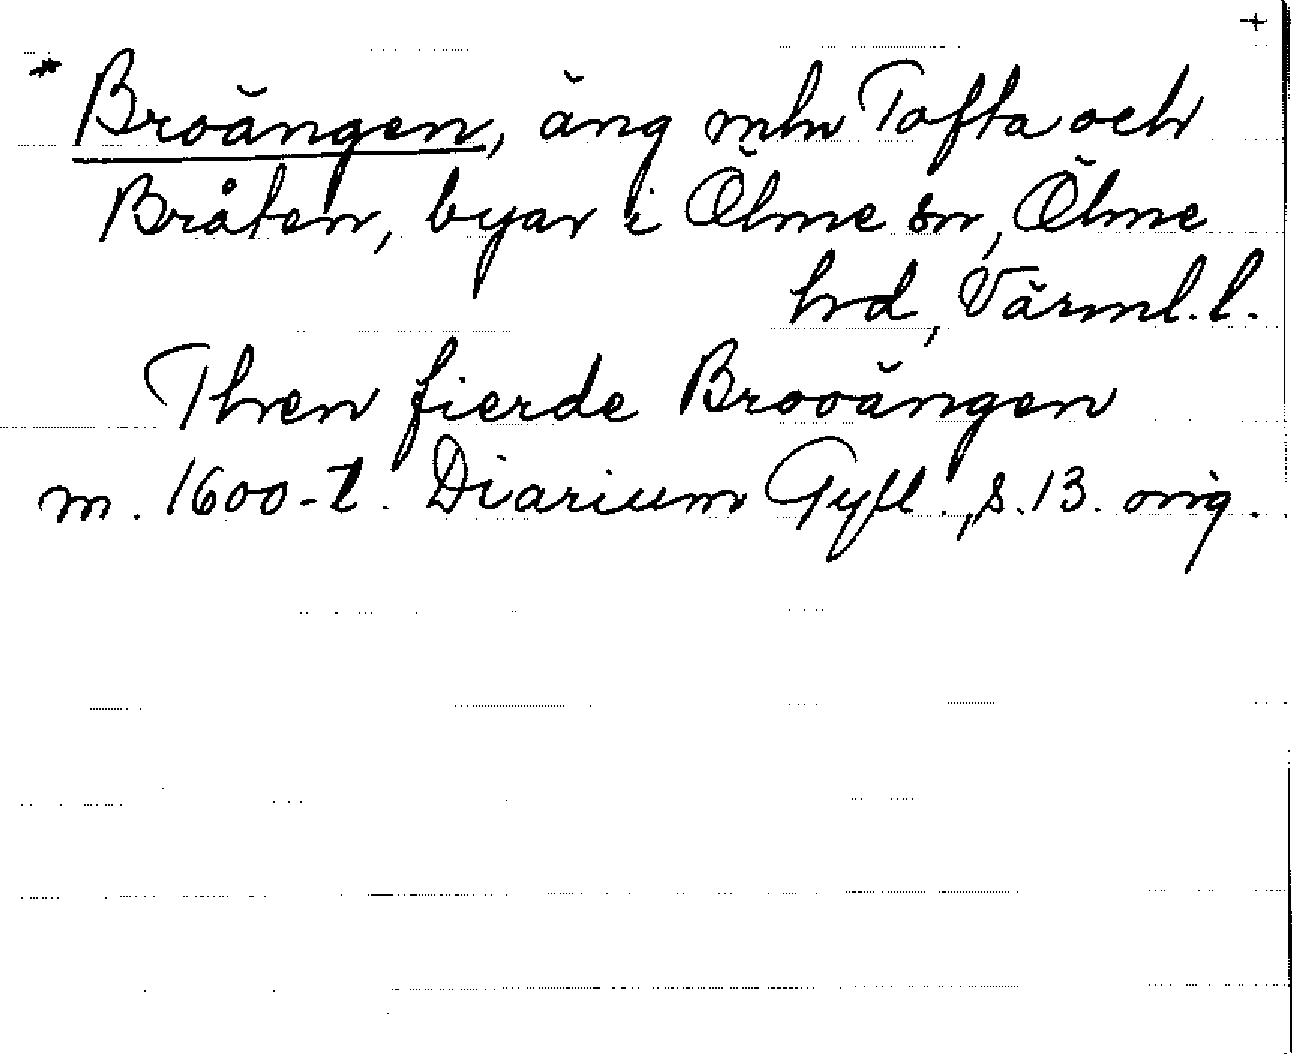 +
* Broängen, äng mln Tofta och
Bråten, byar i Ölme sn, Ölme
hd, Värml. l.
Then fierde Brooängen
m. 1600-t. Diarium Gyll., s. 13. orig.